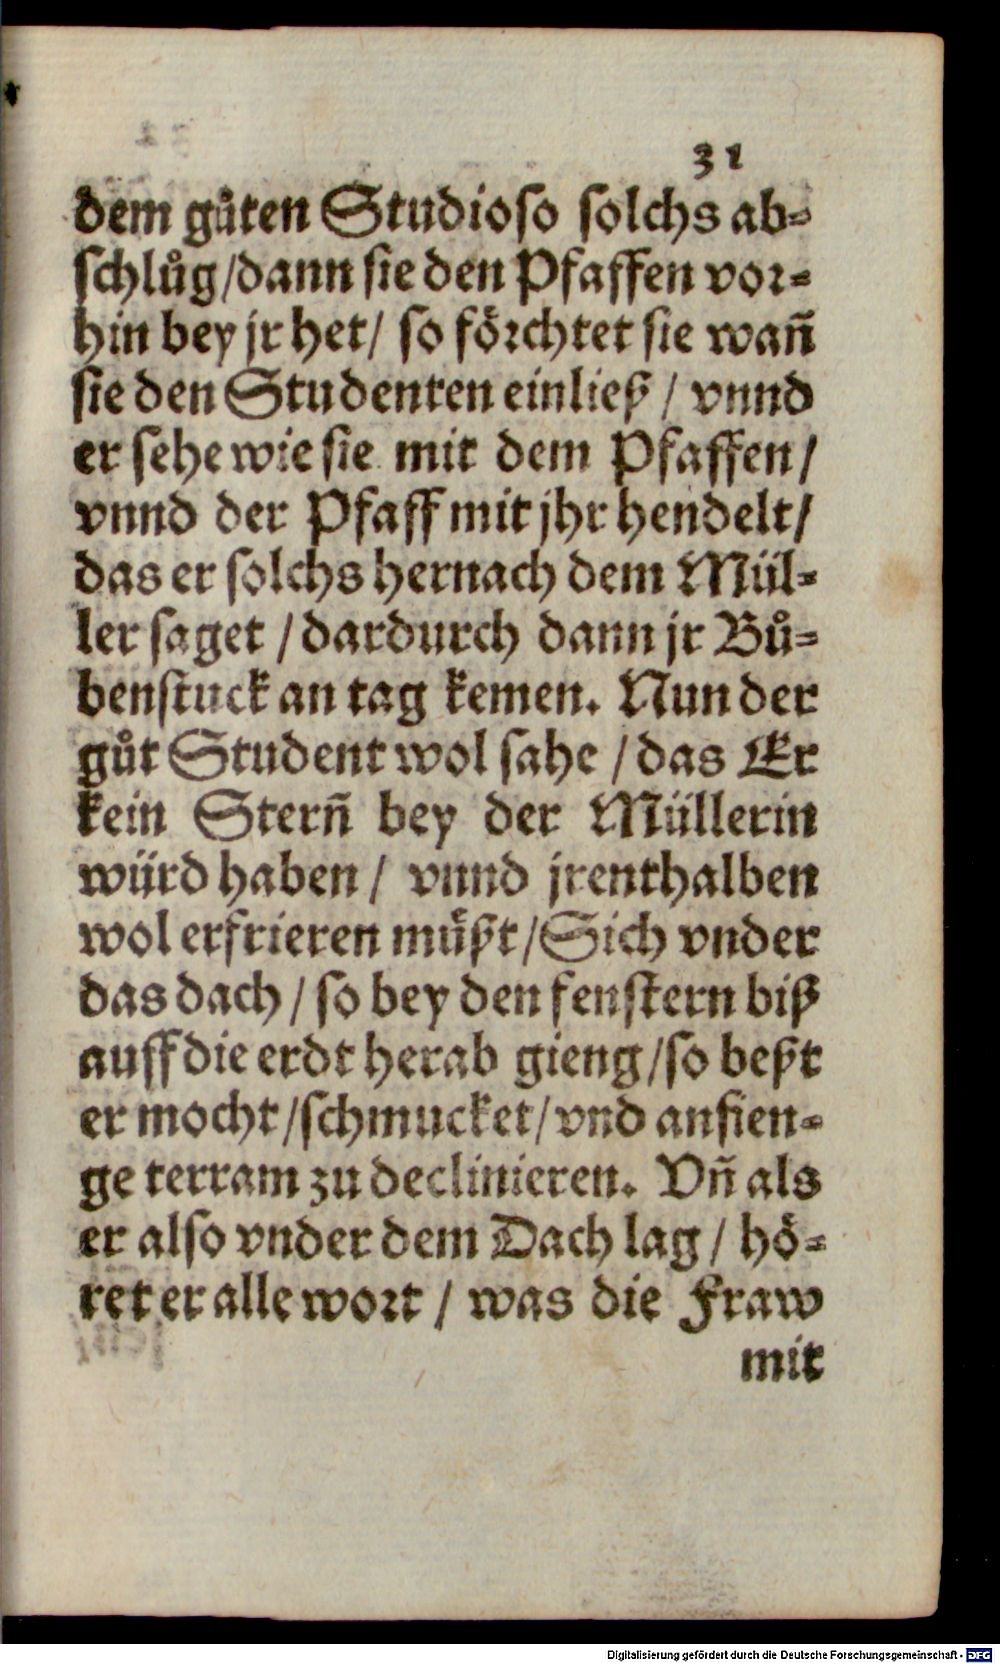 31
dem gůten Studioso solchs ab⸗
schlůg/dann sie den Pfaffen vor⸗
hin bey jr het/ so förchtet sie wañ
sie den Studenten einließ / vnnd
er sehe wie sie mit dem Pfaffen/
vnnd der Pfaff mit jhr hendelt/
das er solchs hernach dem Mül⸗
ler saget / dardurch dann jr Bů⸗
benstuck an tag kemen. Nun der
gůt Student wol sahe / das Er
kein Sterñ bey der Müllerin
würd haben / vnnd jrenthalben
wol erfrieren müßt/Sich vnder
das dach / so bey den fenstern biß
auff die erdt herab gieng/so beßt
er mocht/schmucket/vnd anfien⸗
ge terram zu declinieren. Vñ als
er also vnder dem Dach lag / hö⸗
ret er alle wort / was die Fraw
mit
Digitalisierung gefördert durch die Deutsche Forschungsgemeinschaft - DFG